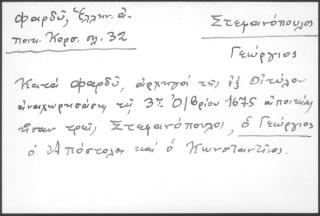 Φαρδύ, Ἑλλην. ἀ-
ποικ. Κορσ. σλ. 32
Στεφανόπουλος
Γεώργιος
Κατὰ Φαρδύν, ἀρχηγοὶ τῆς ἐξ Οἰτύλου
ἀναχωρησάσης τῇ 3ῃ Ὀ/βρίου 1675 ἀποικίας
ἦσαν τρεῖς Στεφανόπουλοι, ὁ Γεώργιος
ὁ Ἀπόστολος καὶ ὁ Κωνσταντῖνος.